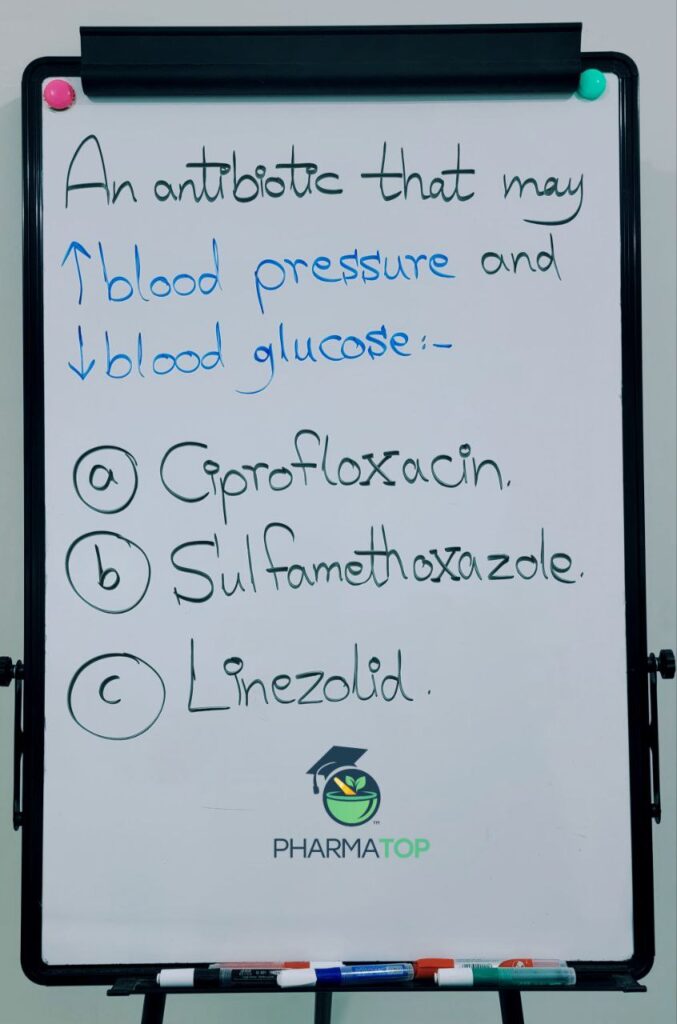 An antibiotic that may
↑blood pressure and
↓blood glucose:-
a Ciprofloxacin.
b Sulfamethoxazole.
c Linezolid.
PHARMATOP